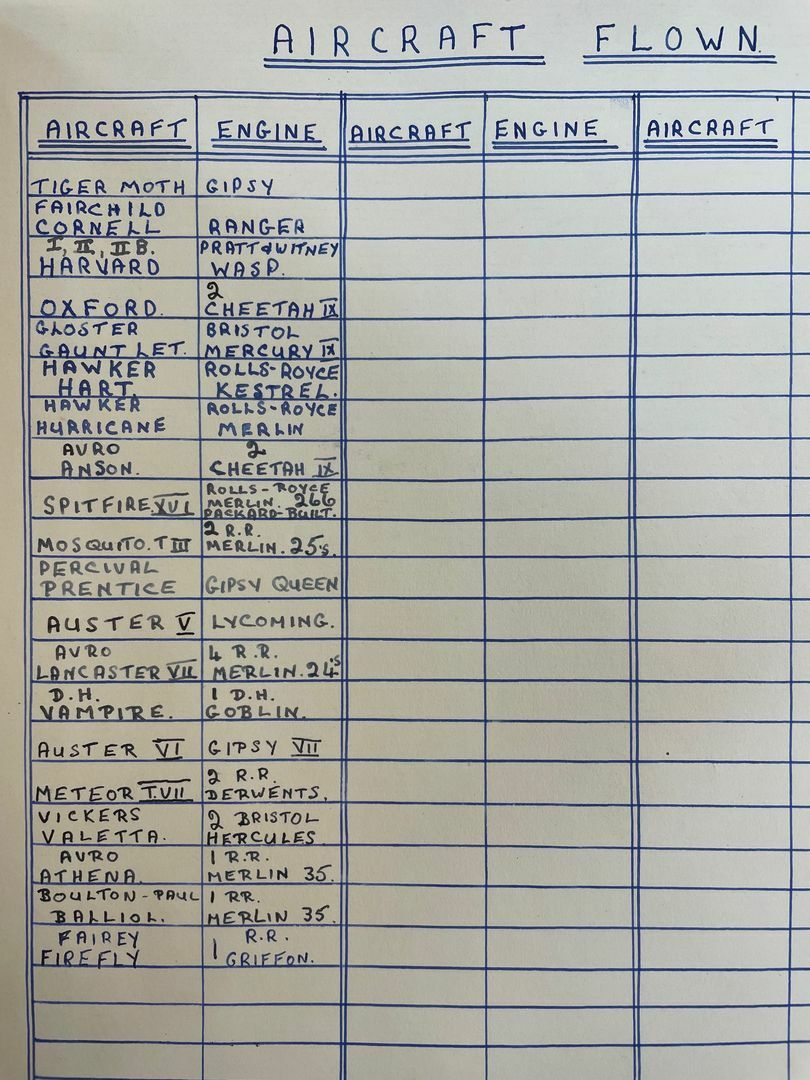 AIRCRAFT FLOWN.
AIRCRAFT ENGINE AIRCRAFT ENGINE AIRCRAFT
TIGER MOTH GIPSY
FAIRCHILD
CORNELL RANGER
I, II, IIB. PRATT & WITNEY
HARVARD WASP.
2
OXFORD. CHEETAH IX
GLOSTER BRISTOL
GAUNTLET. MERCURY IX
HAWKER ROLLS-ROYCE
HART. KESTREL.
HAWKER ROLLS-ROYCE
HURRICANE MERLIN
AVRO 2
ANSON. CHEETAH IX
ROLLS-ROYCE
SPITFIRE XVI MERLIN. 266
PACKARD-BUILT.
2 R.R.
MOSQUITO. T III MERLIN. 25's.
PERCIVAL
PRENTICE GIPSY QUEEN
AUSTER V LYCOMING.
AVRO 4 R.R.
LANCASTER VII MERLIN. 24's
D.H. 1 D.H.
VAMPIRE. GOBLIN.
AUSTER VI GIPSY VII
2 R.R.
METEOR T.VII DERWENTS.
VICKERS 2 BRISTOL
VALETTA. HERCULES
AVRO 1 R.R.
ATHENA. MERLIN 35.
BOULTON-PAUL 1 RR.
BALLIOL. MERLIN 35.
FAIREY 1 R.R.
FIREFLY GRIFFON.